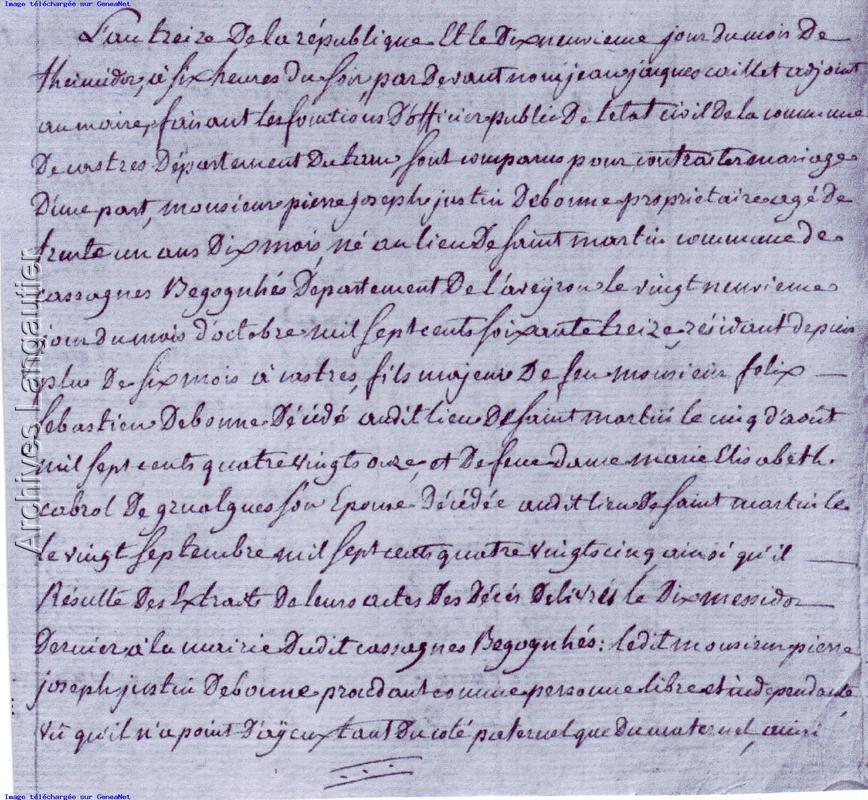 Image téléchargée sur GeneaNet
L'an treize De la république Et le Dix neuvieme jour du mois De
thermidor, à six heures du soir, par Devant nous jean jacques caillet adjoint
au maire, faisant les fonctions D'officier public De l'etat civil de la commune
De castres Département Du tarn, sont comparus pour contracter mariage
D'une part, monsieur pierre joseph justin Debonne proprietaire agé de
trente un ans Dix mois, né au lieu De saint martin commune de
cassagnes Begognhés Département De l'aveÿron le vingt neuvieme
jour du mois d'octobre mil sept cents soixante treize, résidant depuis
plus De six mois à castres, fils majeur De feu monsieur felix
sebastien Debonne Décédé audit lieu De saint martin le cinq d'août
mil sept cents quatre vingts onze, et De feue dame marie Elisabeth
cabrol De grualgues son Epouse Décédée audit lieu De saint martin le
le vingt septembre mil sept cents quatre vingts cinq, ainsi qu'il
Résulte Des Extraits De leurs actes Des Décés Delivrés le Dix messidor
Dernier, à la mairie Dudit cassagnes Begognhés: ledit monsieur pierre
joseph justin Debonne procédant comme personne libre et independante,
vû qu'il n'a point D'aÿeux tant Du coté paternel que Du maternel, ainsi
Archives Langautier
Image téléchargée sur GeneaNet